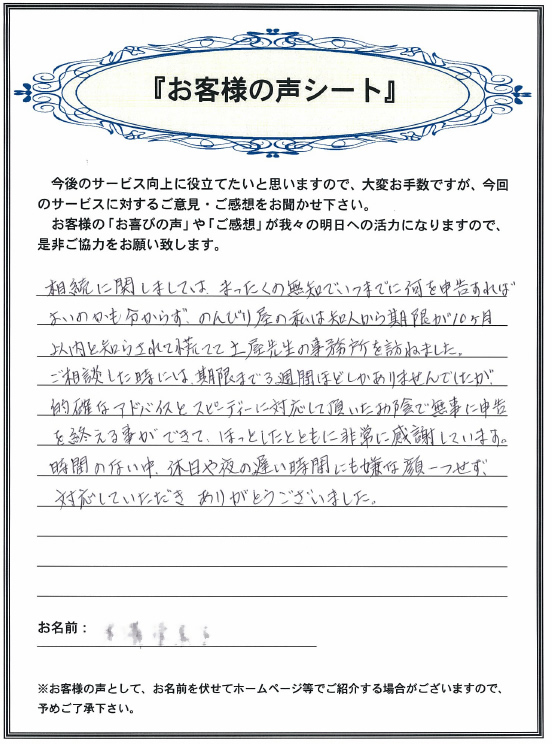 『お客様の声シート』
今後のサービス向上に役立てたいと思いますので、大変お手数ですが、今回
のサービスに対するご意見・ご感想をお聞かせ下さい。
お客様の「お喜びの声」や「ご感想」が我々の明日への活力になりますので、
是非ご協力をお願い致します。
相続に関しましては、まったくの無知でいつまでに何を申告すれば
よいのかも分からず、のんびり屋の私は知人から期限が10ヶ月
以内と知らされて慌てて土屋先生の事務所を訪ねました。
ご相談した時には、期限まで3週間ほどしかありませんでしたが、
的確なアドバイスとスピーディーに対応して頂いたお陰で無事に申告
を終える事ができて、ほっとしたとともに非常に感謝しています。
時間のない中、休日や夜の遅い時間にも嫌な顔一つせず、
対応していただき ありがとうございました。
お名前：
※お客様の声として、お名前を伏せてホームページ等でご紹介する場合がございますので、
予めご了承下さい。